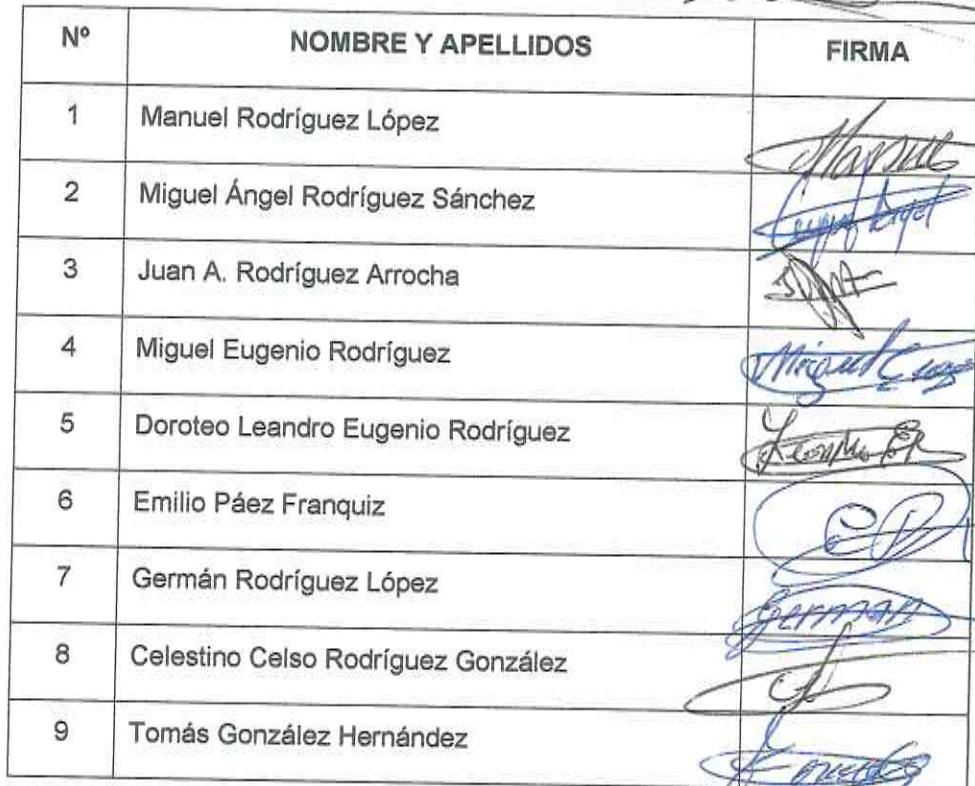 Nº NOMBRE Y APELLIDOS FIRMA
1 Manuel Rodríguez López Manuel
2 Miguel Ángel Rodríguez Sánchez
3 Juan A. Rodríguez Arrocha
4 Miguel Eugenio Rodríguez Miguel
5 Doroteo Leandro Eugenio Rodríguez
6 Emilio Páez Franquiz
7 Germán Rodríguez López German
8 Celestino Celso Rodríguez González
9 Tomás González Hernández